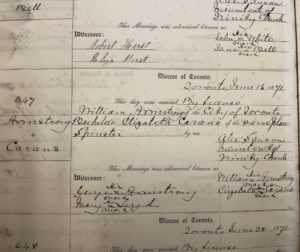 Bell
Incumbent of
Trinity Church
This Marriage was solemnized between us
his
Witnesses: John X White
mark
Robert Hurst
mark
Eliza Hurst
Diocese of Toronto.
Toronto June 15 1871
647
This day were married By License
Armstrong William Armstrong of the City of Toronto
& Bachelor & Elizabeth Carans of the same place
Carans Spinster
by me
Incumbent
Trinity Church
This Marriage was solemnized between us
Witnesses:
his
George X Armstrong
mark
her
Mary X
mark
Elizabeth Carans
Diocese of Toronto.
Toronto June 28 1871
648
This day were married By License